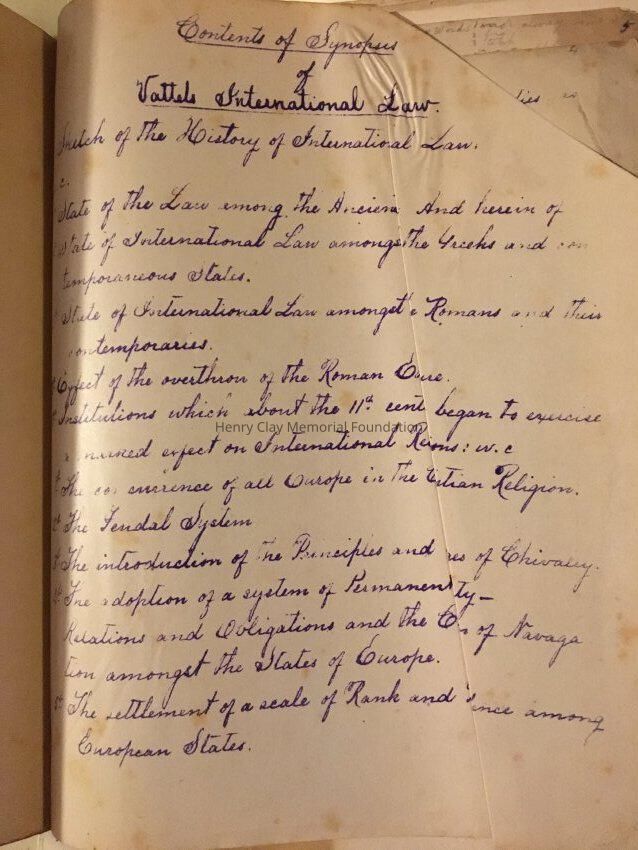 Contents of Synopsis
of
Vattels International Law.
Sketch of the History of International Law.
State of the Law among the Ancients And herein of
State of International Law amongst the Greeks and con
temporaneous States.
State of International Law amongst Romans and their
contemporaries.
Effect of the overthrow of the Roman
Institutions which about the 11th cent began to exercise
a marked effect on International
Henry Clay Memorial Foundation
The concurrence of all Europe in the Religion.
The Feudal System
The introduction of the Principles and of Chivalry.
The adoption of a system of Permanent
Relations and Obligations and the of Naviga
tion amongst the States of Europe.
The settlement of a scale of Rank and among
European States.